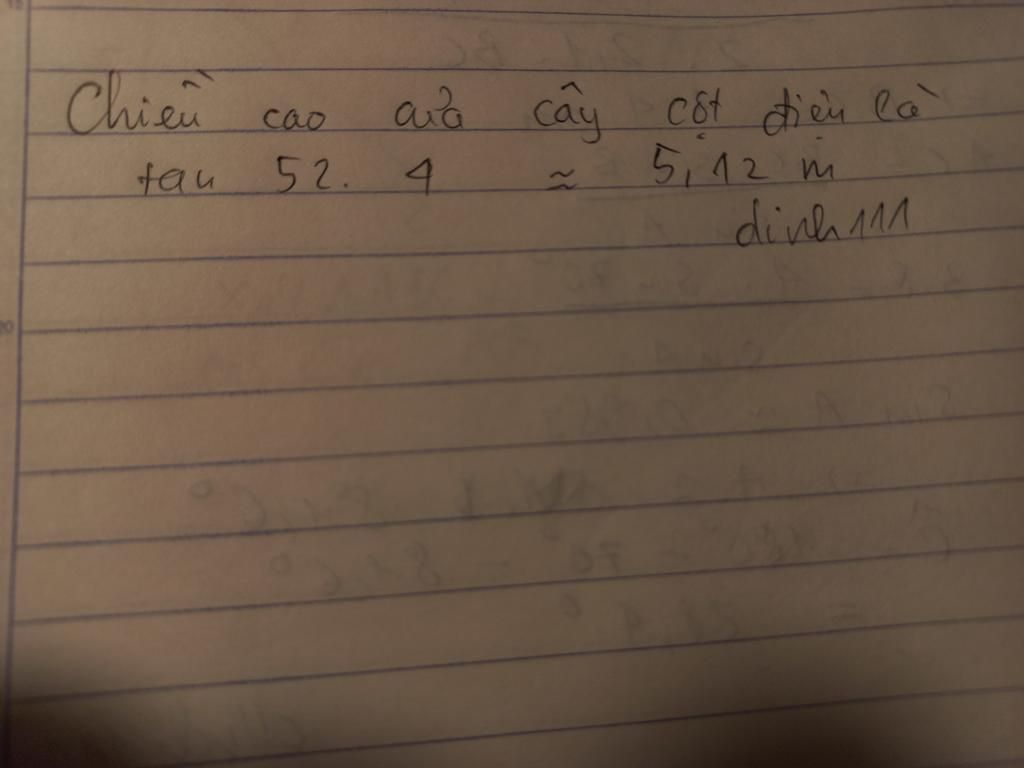 Chiều cao của cây cột điện là
tan 52. 4 ≈ 5,12 m
dinh111